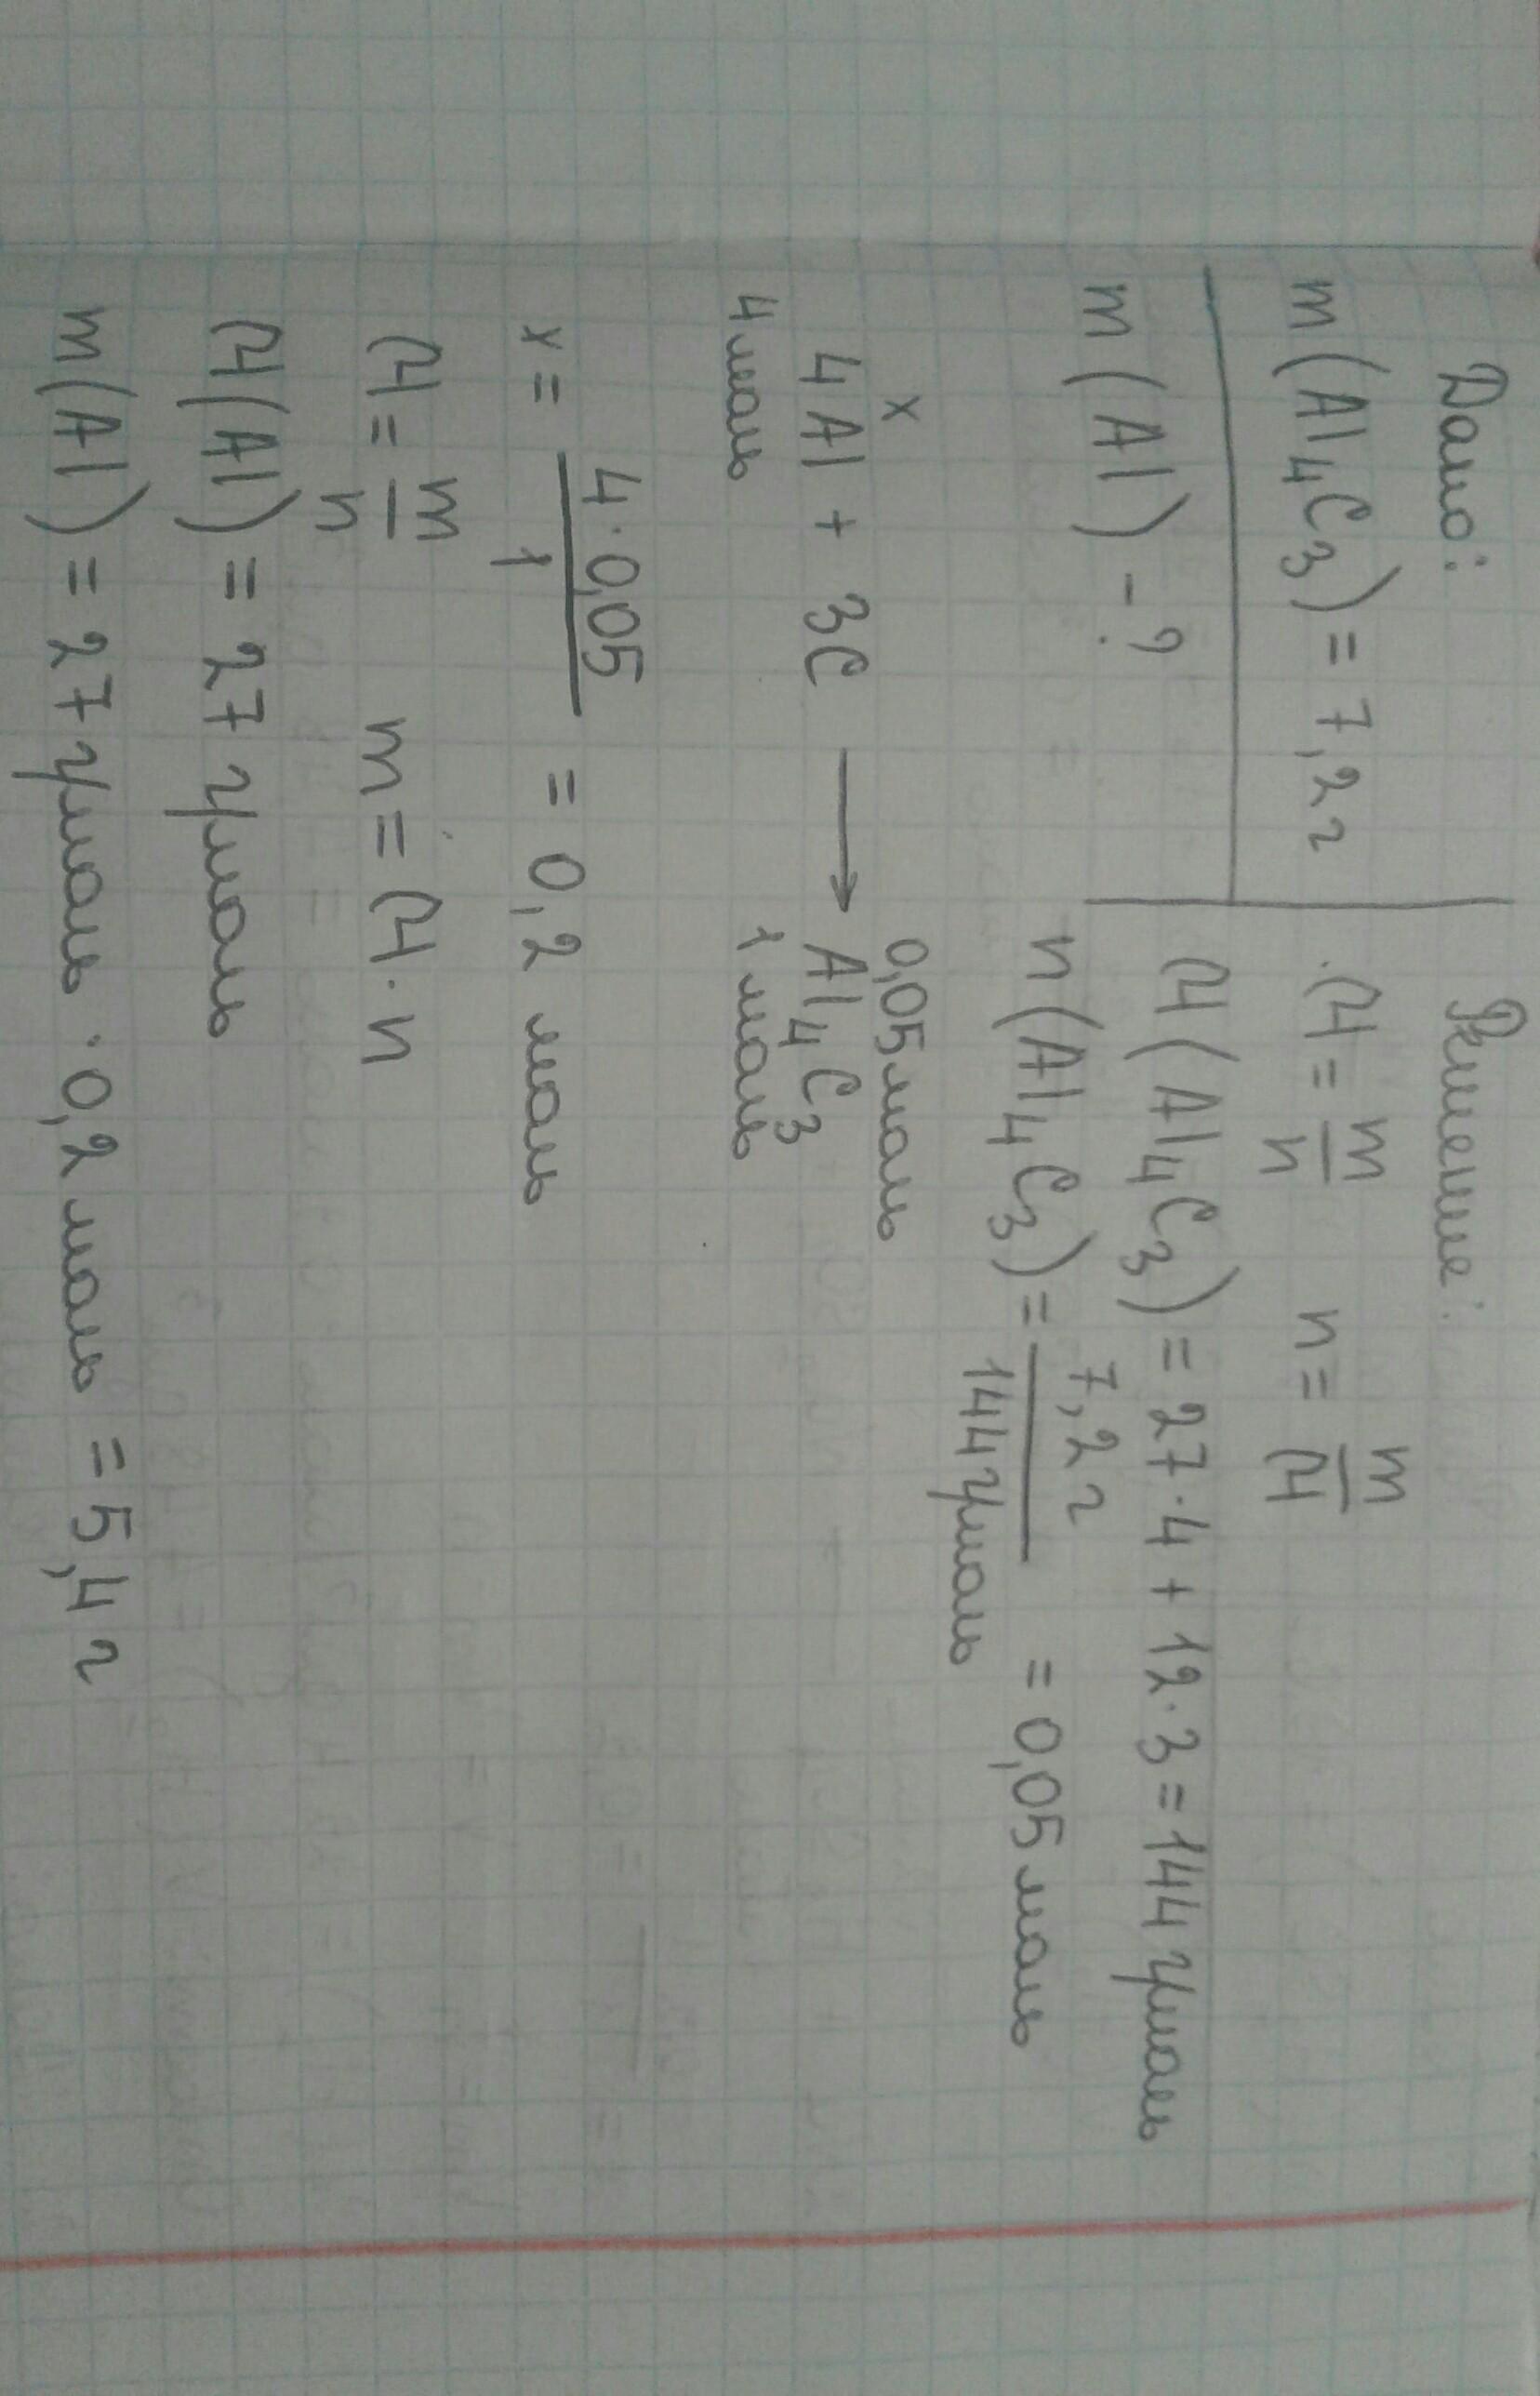 Дано:
m(Al₄C₃) = 7,2 г
m(Al) - ?
Решение:
M = m/n   n = m/M
M(Al₄C₃) = 27·4 + 12·3 = 144 г/моль
n(Al₄C₃) = 7,2 г / 144 г/моль = 0,05 моль
x   0,05 моль
4Al + 3C → Al₄C₃
4 моль   1 моль
x = 4·0,05 / 1 = 0,2 моль
M = m/n   m = M·n
M(Al) = 27 г/моль
m(Al) = 27 г/моль · 0,2 моль = 5,4 г